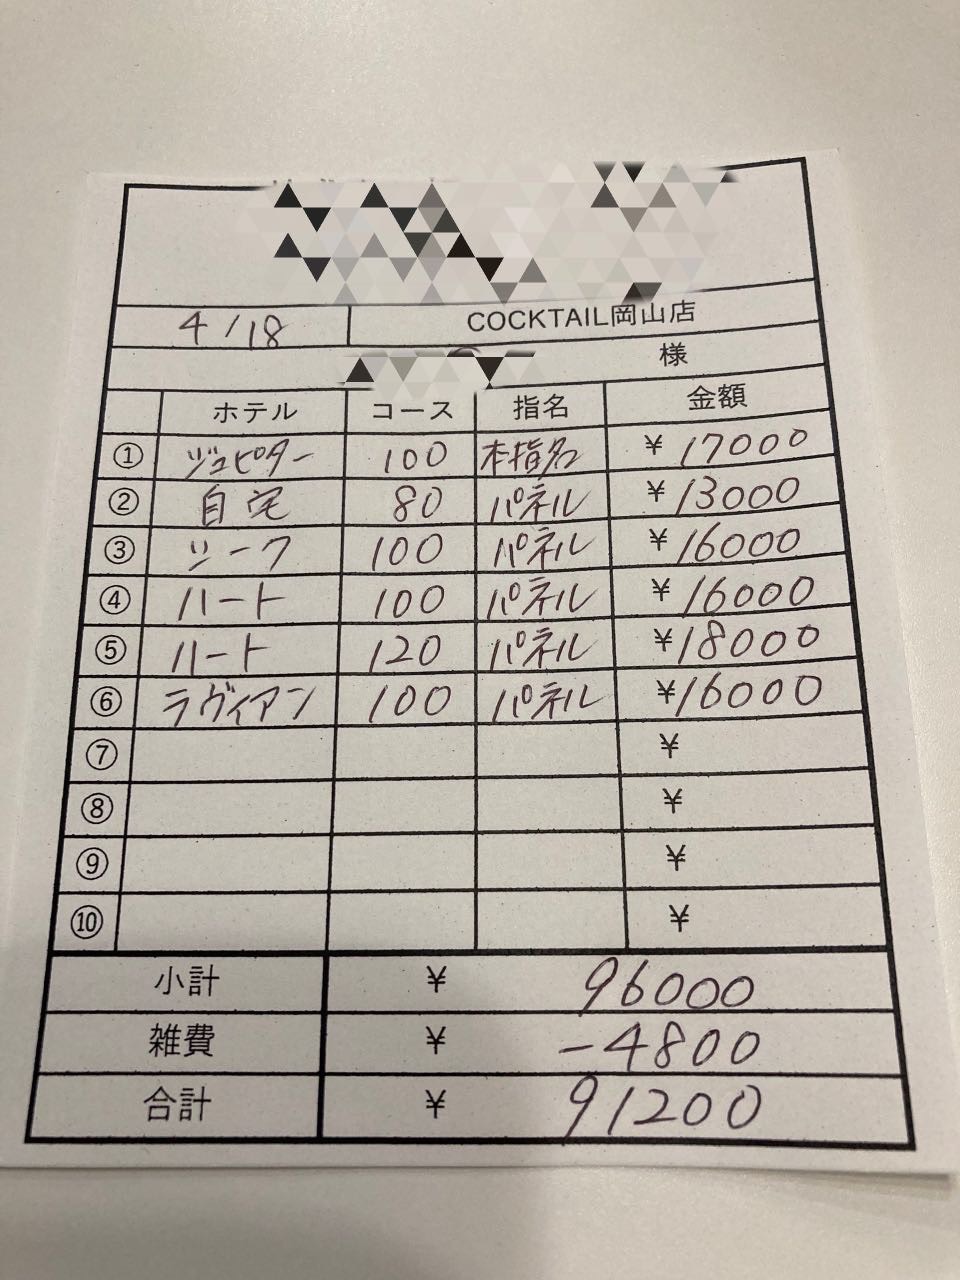 4/18 COCKTAIL岡山店
様
ホテル コース 指名 金額
① ジュピター 100 本指名 ¥17000
② 自宅 80 パネル ¥13000
③ リーク 100 パネル ¥16000
④ ハート 100 パネル ¥16000
⑤ ハート 120 パネル ¥18000
⑥ ラヴィアン 100 パネル ¥16000
⑦ ¥
⑧ ¥
⑨ ¥
⑩ ¥
小計 ¥ 96000
雑費 ¥ -4800
合計 ¥ 91200